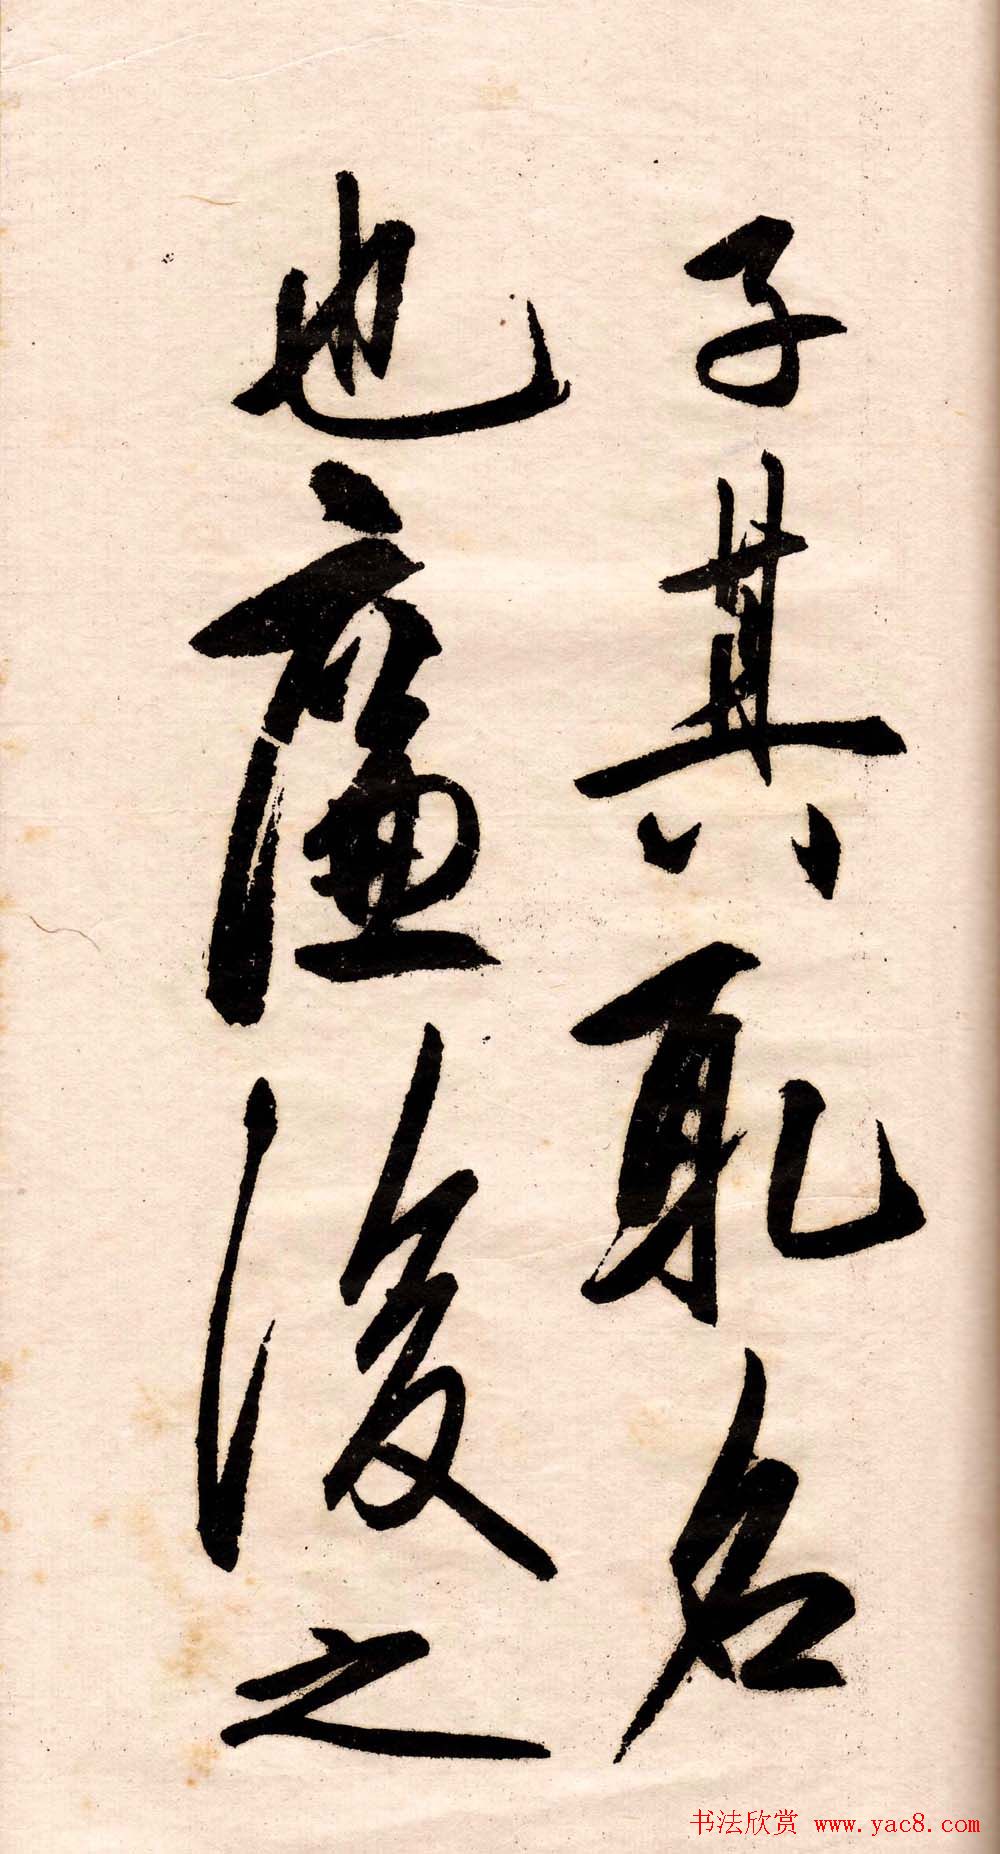 子其耴名
也廉後之
书法欣赏 www.yac8.com